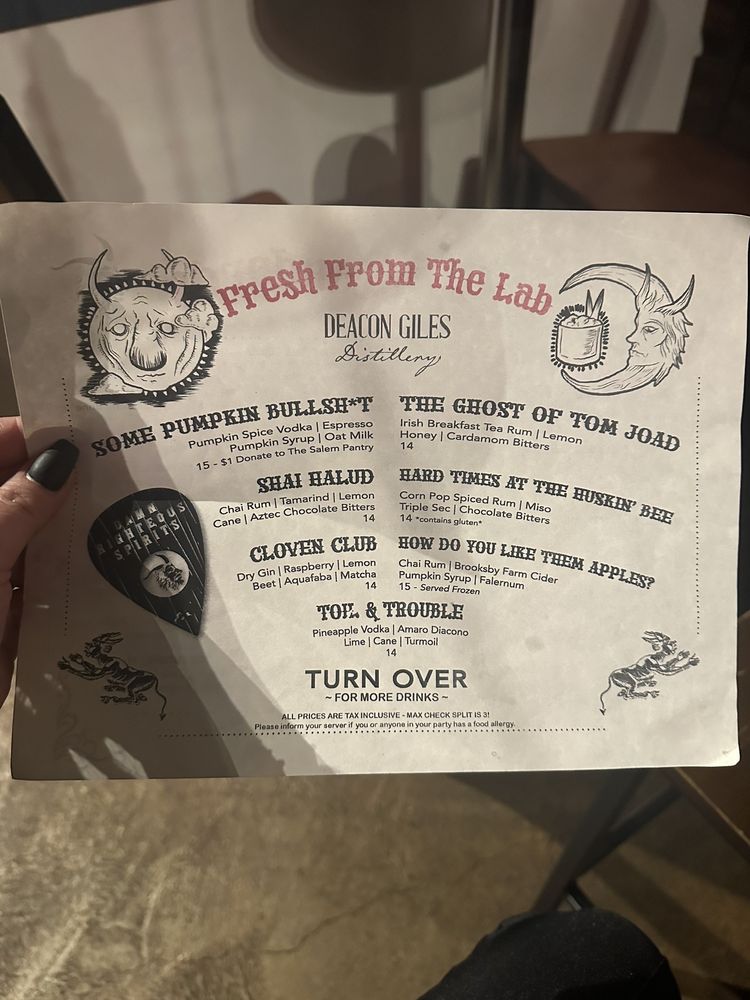 Fresh From The Lab
DEACON GILES
Distillery
SOME PUMPKIN BULLSH*T
Pumpkin Spice Vodka | Espresso
Pumpkin Syrup | Oat Milk
15 - $1 Donate to The Salem Pantry
SHAI HALUD
Chai Rum | Tamarind | Lemon
Cane | Aztec Chocolate Bitters
14
CLOVEN CLUB
Dry Gin | Raspberry | Lemon
Beet | Aquafaba | Matcha
14
THE GHOST OF TOM JOAD
Irish Breakfast Tea Rum | Lemon
Honey | Cardamom Bitters
14
HARD TIMES AT THE HUSKIN' BEE
Corn Pop Spiced Rum | Miso
Triple Sec | Chocolate Bitters
14 *contains gluten*
HOW DO YOU LIKE THEM APPLES?
Chai Rum | Brooksby Farm Cider
Pumpkin Syrup | Falernum
15 - Served Frozen
TOIL & TROUBLE
Pineapple Vodka | Amaro Diacono
Lime | Cane | Turmoil
14
DAMN
RIGHTEOUS
SPIRITS
TURN OVER
~ FOR MORE DRINKS ~
ALL PRICES ARE TAX INCLUSIVE - MAX CHECK SPLIT IS 3!
Please inform your server if you or anyone in your party has a food allergy.